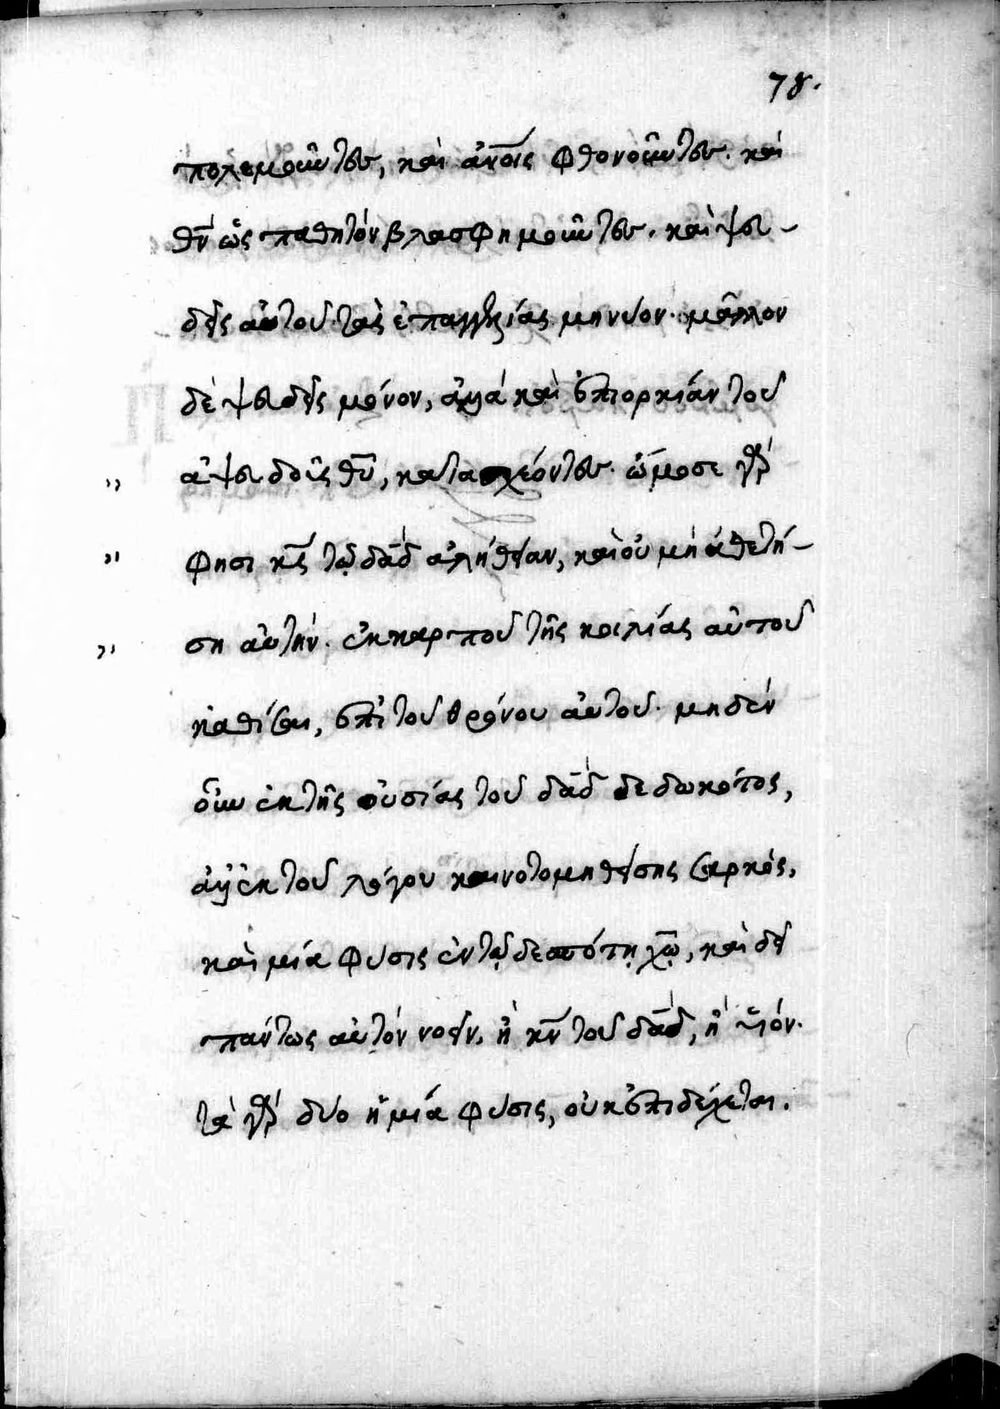 78.
πολεμοῦντες, καὶ ἀνοις φθονοῦντες. καὶ
θν ὡς παθητόν βλασφημοῦντες. καὶ ψευ-
δεῖς αὐτοῦ τὰς ἐπαγγελίας μηνύον. μᾶλλον
δὲ ψευδεῖς μόνον, ἀλλὰ καὶ ἐπιορκίαν τοῦ
ἀψευδοῦς θυ, καταχέοντες. ὤμοσε γὰρ
φησι κς τῷ δαδ ἀλήθειαν, καὶ οὐ μὴ ἀθετή-
ση αὐτήν. ἐκ καρποῦ τῆς κοιλίας αὐτοῦ
καθίσαι, ἐπὶ τοῦ θρόνου αὐτοῦ. μηδὲν
οὖν ἐκ τῆς οὐσίας τοῦ δαδ δεδωκότος,
ἀλλ' ἐκ τοῦ λόγου καινοτομηθείσης σαρκὸς,
καὶ μία φύσις ἐν τῷ δεσπότῃ χω, καὶ δεῖ
πάντως αὐτόν νοεῖν. ἢ κν τοῦ δαδ, ἢ υἱόν.
τὰ γὰρ δύο ἡ μία φύσις, οὐκ ἐπιδέχεται.